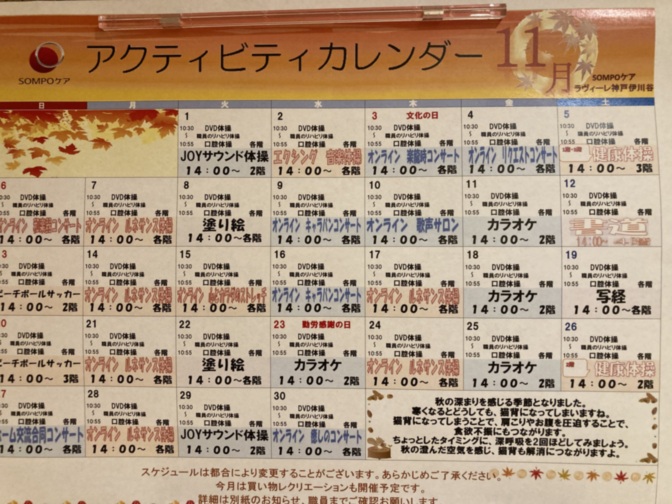 SOMPOケア
アクティビティカレンダー
11月
SOMPOケア
ラヴィーレ神戸伊川谷
日 月 火 水 木 金 土
1
10:30 DVD体操
職員のリハビリ体操
10:55 口腔体操 各階
JOYサウンド体操
14:00〜 2階
2
10:30 DVD体操
職員のリハビリ体操
10:55 口腔体操 各階
14:00〜 各階
3 文化の日
10:30 DVD体操
職員のリハビリ体操
10:55 口腔体操 各階
オンライン コンサート
14:00〜 各階
4
10:30 DVD体操
職員のリハビリ体操
10:55 口腔体操 各階
オンライン リクエストコンサート
14:00〜 各階
5
10:30 DVD体操
職員のリハビリ体操
10:55 口腔体操 各階
健康体操
14:00〜 3階
6
DVD体操
職員のリハビリ体操
口腔体操 各階
14:00〜 各階
7
10:30 DVD体操
職員のリハビリ体操
10:55 口腔体操 各階
オンライン ルネサンス
14:00〜 各階
8
10:30 DVD体操
職員のリハビリ体操
10:55 口腔体操 各階
塗り絵
14:00〜 各階
9
10:30 DVD体操
職員のリハビリ体操
10:55 口腔体操 各階
オンライン キャラバンコンサート
14:00〜 各階
10
10:30 DVD体操
職員のリハビリ体操
10:55 口腔体操 各階
オンライン 歌声サロン
14:00〜 各階
11
10:30 DVD体操
職員のリハビリ体操
10:55 口腔体操 各階
カラオケ
14:00〜 2階
12
10:30 DVD体操
職員のリハビリ体操
10:55 口腔体操 各階
書道
14:00〜
3
DVD体操
職員のリハビリ体操
口腔体操 各階
ビーチボールサッカー
14:00〜 2階
14
10:30 DVD体操
職員のリハビリ体操
10:55 口腔体操 各階
オンライン ルネサンス
14:00〜 各階
15
10:30 DVD体操
職員のリハビリ体操
10:55 口腔体操 各階
オンライン
14:00〜 各階
16
10:30 DVD体操
職員のリハビリ体操
10:55 口腔体操 各階
オンライン キャラバンコンサート
14:00〜 各階
17
10:30 DVD体操
職員のリハビリ体操
10:55 口腔体操 各階
オンライン ルネサンス
14:00〜 各階
18
10:30 DVD体操
職員のリハビリ体操
10:55 口腔体操 各階
カラオケ
14:00〜 2階
19
10:30 DVD体操
職員のリハビリ体操
10:55 口腔体操 各階
写経
14:00〜 各階
0
DVD体操
職員のリハビリ体操
口腔体操 各階
ビーチボールサッカー
14:00〜 3階
21
10:30 DVD体操
職員のリハビリ体操
10:55 口腔体操 各階
オンライン ルネサンス
14:00〜 各階
22
10:30 DVD体操
職員のリハビリ体操
10:55 口腔体操 各階
塗り絵
14:00〜 各階
23 勤労感謝の日
10:30 DVD体操
職員のリハビリ体操
10:55 口腔体操 各階
カラオケ
14:00〜 2階
24
10:30 DVD体操
職員のリハビリ体操
10:55 口腔体操 各階
オンライン ルネサンス
14:00〜 各階
25
10:30 DVD体操
職員のリハビリ体操
10:55 口腔体操 各階
カラオケ
14:00〜 2階
26
10:30 DVD体操
職員のリハビリ体操
10:55 口腔体操 各階
健康体操
14:00〜 2階
7
DVD体操
職員のリハビリ体操
口腔体操 各階
ホーム交流合同コンサート
14:00〜 各階
28
10:30 DVD体操
職員のリハビリ体操
10:55 口腔体操 各階
オンライン ルネサンス
14:00〜 各階
29
10:30 DVD体操
職員のリハビリ体操
10:55 口腔体操 各階
JOYサウンド体操
14:00〜 2階
30
10:30 DVD体操
職員のリハビリ体操
10:55 口腔体操 各階
オンライン 癒しのコンサート
14:00〜 各階
秋の深まりを感じる季節となりました。
寒くなるとどうしても、猫背になってしまいますね。
猫背になってしまうことで、肩こりやお腹を圧迫することで、
食欲不振にもつながります。
ちょっとしたタイミングに、深呼吸を2回ほどしてみましょう。
秋の澄んだ空気を感じ、猫背も解消につながりますよ。
スケジュールは都合により変更することがございます。あらかじめご了承ください。
今月は買い物レクリエーションも開催予定です。
詳細は別紙のお知らせ、職員までご確認お願いします。